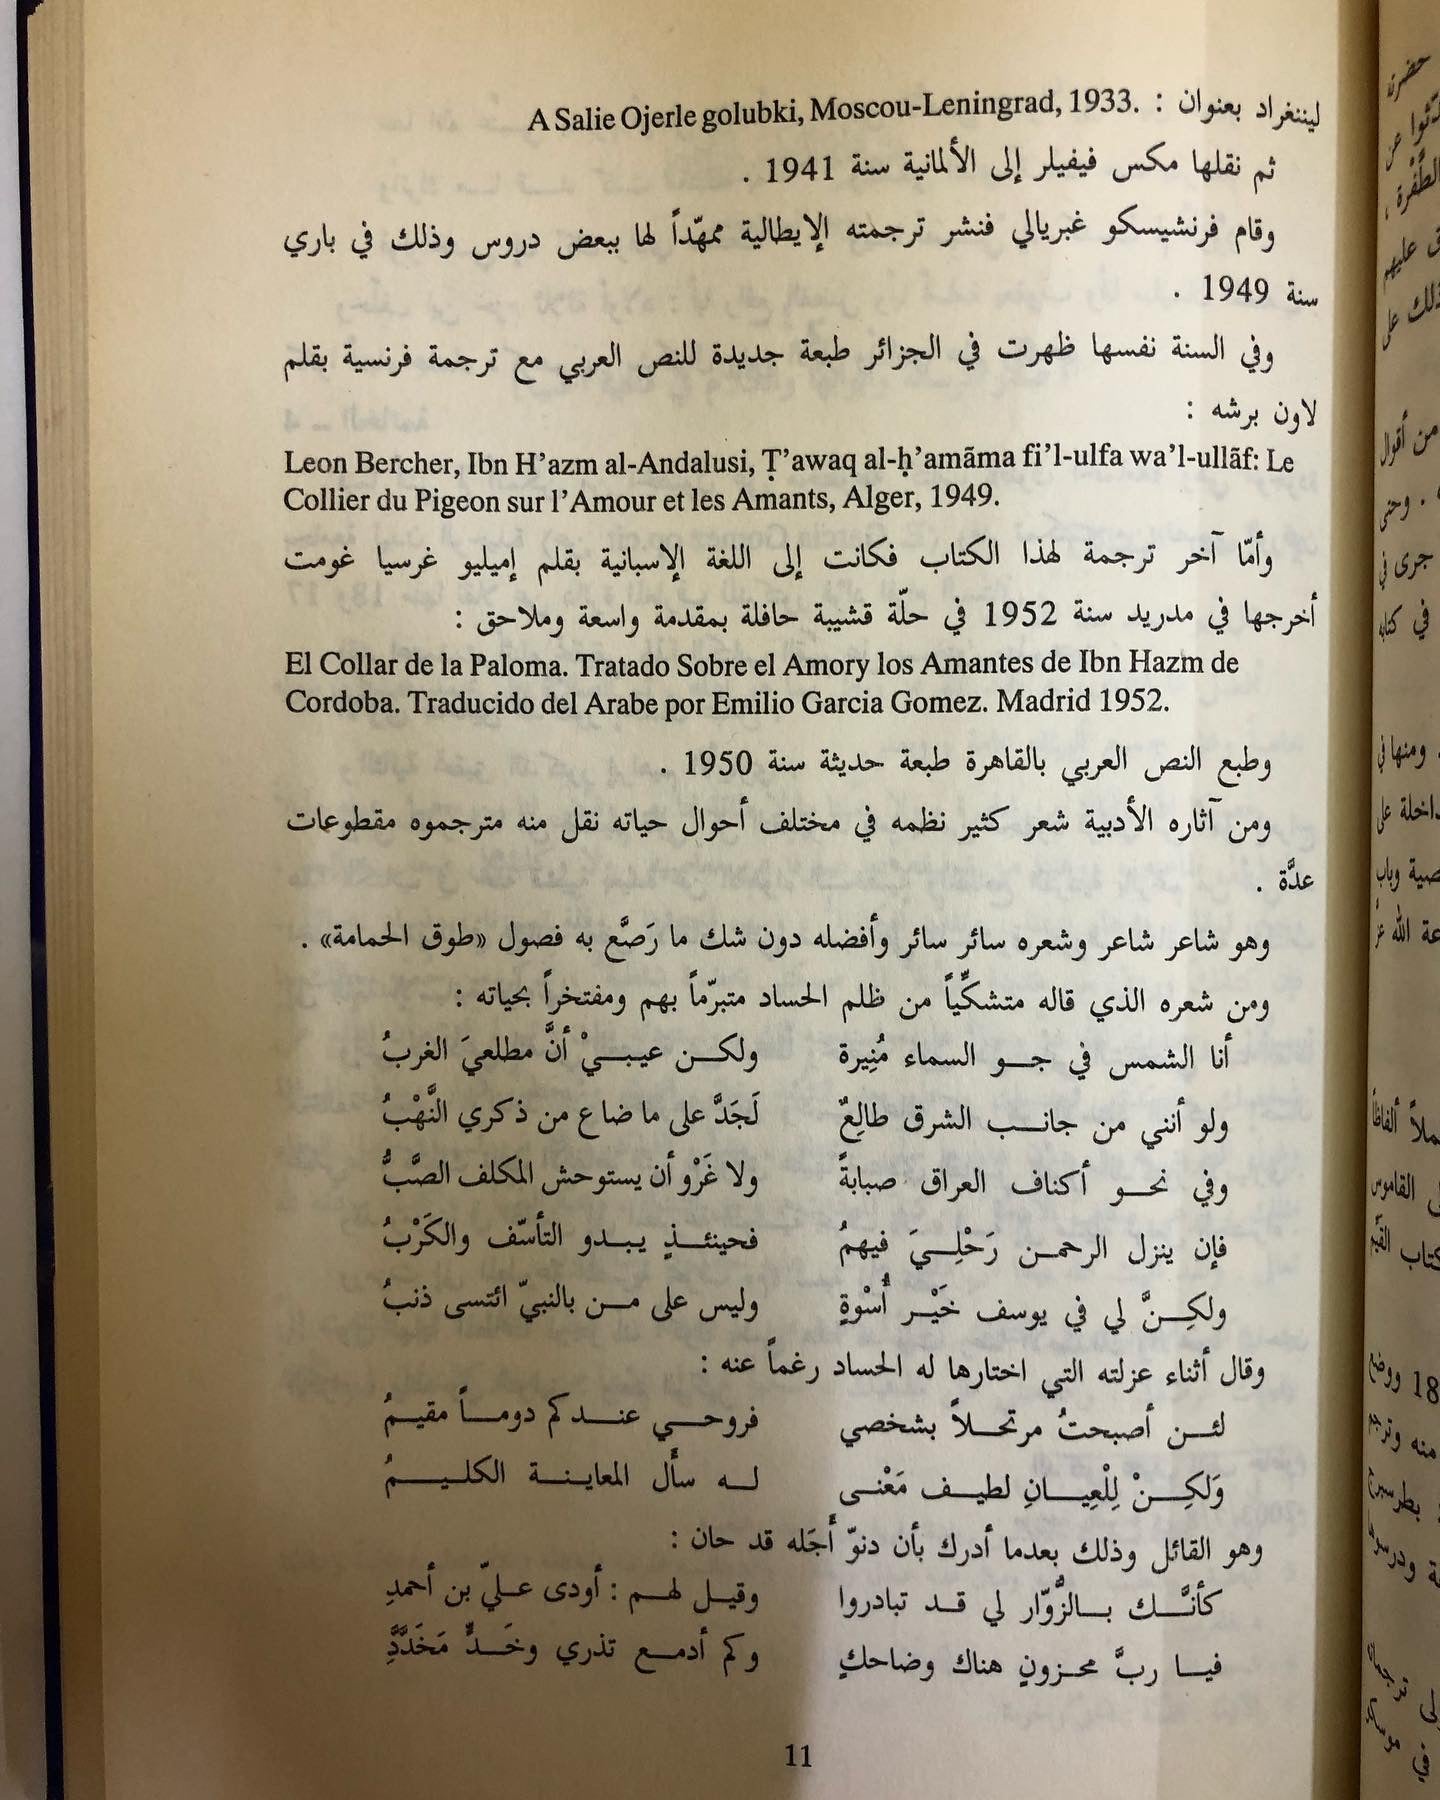 ليننغراد بعنوان : A Salie Ojerle golubki, Moscou-Leningrad, 1933.
ثم نقلها مكس فيفيلر إلى الألمانية سنة 1941 .
وقام فرنشيسكو غبريالي فنشر ترجمته الإيطالية ممهّداً لها ببعض دروس وذلك في باري
سنة 1949 .
وفي السنة نفسها ظهرت في الجزائر طبعة جديدة للنص العربي مع ترجمة فرنسية بقلم
لاون برشه :
Leon Bercher, Ibn H’azm al-Andalusi, Ṭ’awaq al-ḥ’amāma fi’l-ulfa wa’l-ullāf: Le
Collier du Pigeon sur l’Amour et les Amants, Alger, 1949.
وأمّا آخر ترجمة لهذا الكتاب فكانت إلى اللغة الإسبانية بقلم إميليو غرسيا غومت
أخرجها في مدريد سنة 1952 في حلّة قشيبة حافلة بمقدمة واسعة وملاحق :
El Collar de la Paloma. Tratado Sobre el Amory los Amantes de Ibn Hazm de
Cordoba. Traducido del Arabe por Emilio Garcia Gomez. Madrid 1952.
وطبع النص العربي بالقاهرة طبعة حديثة سنة 1950 .
ومن آثاره الأدبية شعر كثير نظمه في مختلف أحوال حياته نقل منه مترجموه مقطوعات
عدَّة .
وهو شاعر شاعر وشعره سائر سائر وأفضله دون شك ما رَصَّع به فصول «طوق الحمامة» .
ومن شعره الذي قاله متشكِّياً من ظلم الحساد متبرّماً بهم ومفتخراً بحياته :
أنا الشمس في جو السماء مُنِيرة ولكن عيبيْ أنَّ مطلعيَ الغربُ
ولو أنني من جانب الشرق طالِعٌ لَجَدَّ على ما ضاع من ذكري النَّهْبُ
وفي نحو أكناف العراق صبابةً ولا غَرْو أن يستوحش المكلف الصَّبُّ
فإن ينزل الرحمن رَحْلِيَ فيهمُ فحينئذٍ يبدو التأسّف والكَرْبُ
ولكِنَّ لي في يوسف خَيْر أُسْوةٍ وليس على من بالنبيّ ائتسى ذنبُ
وقال أثناء عزلته التي اختارها له الحساد رغماً عنه :
لئن أصبحتُ مرتحلاً بشخصي فروحي عندكم دوماً مقيمُ
وَلكِنْ لِلْعِيانِ لطيف مَعْنى له سأَل المعاينة الكليمُ
وهو القائل وذلك بعدما أدرك بأن دنوّ أَجَله قد حان :
كأنَّك بالزُّوّار لي قد تبادروا وقيل لهم : أودى عليّ بن أحمدِ
فيا ربَّ محزونٍ هناك وضاحكٍ وكم أدمع تذري وخَدٍّ مَخَدَّدِ
11